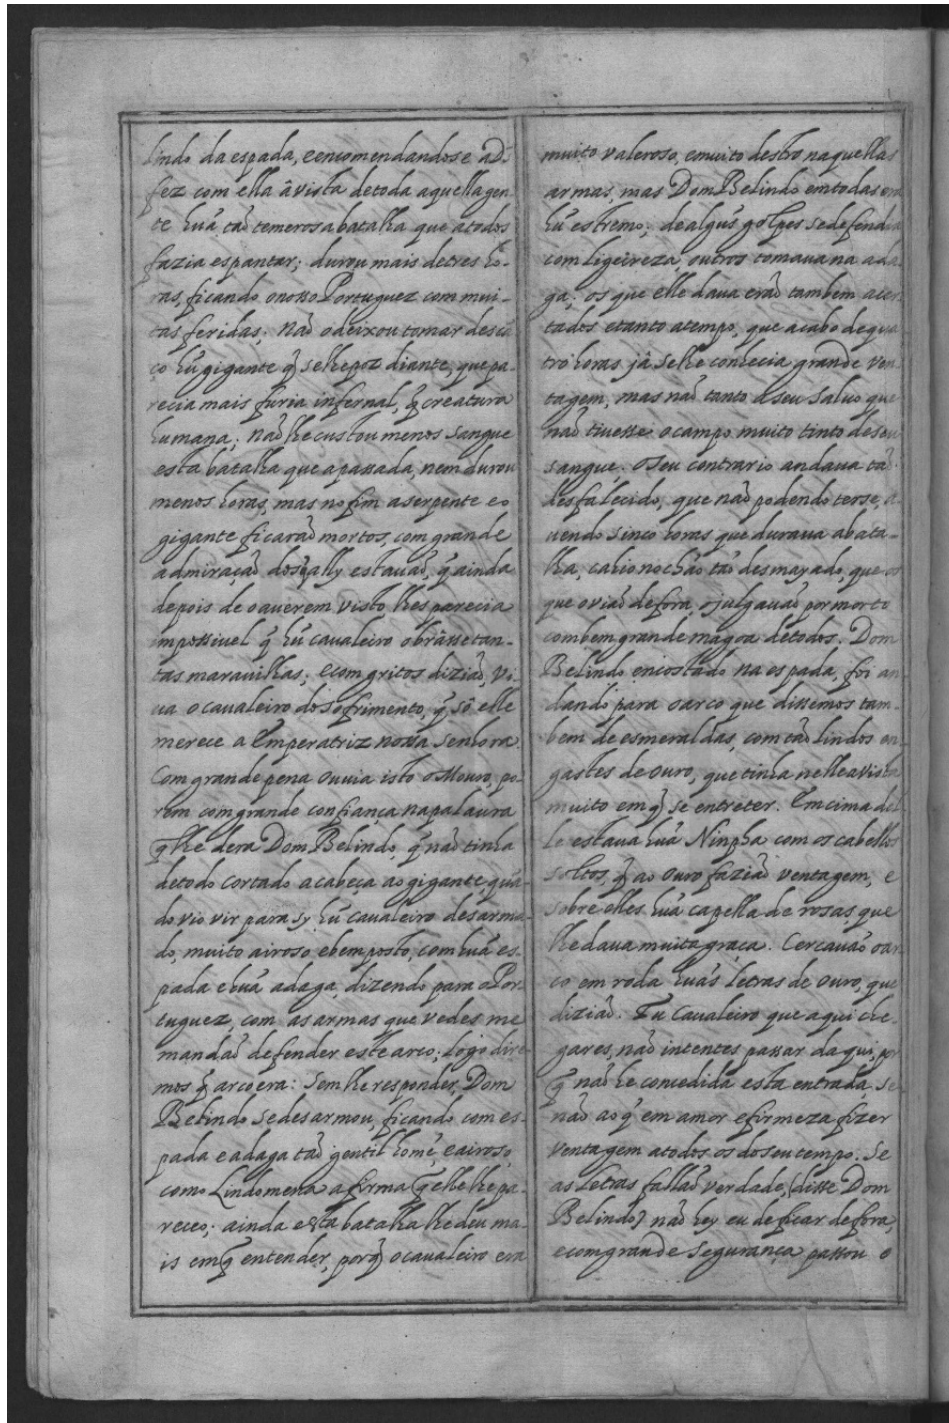 lindo da espada, eencomendandose a Ds
fez com ella âvista detoda aquella gen
te huã taõ temerosa batalha que atodos
fazia espantar; durou mais detres ho-
ras, ficando onosso Portuguez com mui-
tas feridas; naõ odeixou tomar descã
co hũ gigante q̃ selhepoz diante, quepa-
recia mais furia infernal, q̃ creatura
humana; naõ lhecustou menos sangue
esta batalha que apassada, nem durou
menos horas, mas nofim aserpente eo
gigante ficaraõ mortos, com grande
admiraçaõ dosq̃ ally estauaõ, q̃ ainda
depois de oauerem visto lhes parecia
impossivel q̃ hũ caualeiro obrásse tan-
tas marauilhas; ecom gritos diziaõ, Vi-
ua o caualeiro dosofrimento, q̃ sô elle
merece a Emperatriz nossa senhora.
Com grande pena ouuia isto oMouro, po-
rem comgrande confiança napalaura
q̃ lhe dera Dom Belindo, q̃ naõ tinha
detodo cortado acabeça ao gigante, quã-
do vio vir para sy hũ caualeiro desarma-
do, muito airoso, ebemposto, com huã es-
pada ehuã adaga, dizendo para oPor-
tuguez, com as armas que vedes me
mandaõ defender este arco; logo dire-
mos q̃ arco era: Sem lhe responder, Dom
Belindo sedesarmou, ficando com es-
pada eadaga taõ gentil homẽ, eairoso,
como Lindomena afirma q̃ elle lhe pa-
receo; ainda esta batalha lhedeu ma-
is emq̃ entender, porq̃ ocaualeiro era
muito valeroso, emuito destro naquellas
armas, mas Dom Belindo emtodas era
hũ estremo; de algũs golpes sedefendia
comligeireza, outros tomauana ada-
ga; os que elle daua eraõ tambem acer-
tados etanto atempo, que acabo dequa
tro horas jâ selhe conhecia grande ven-
tagem, mas naõ tanto aseu saluo que
naõ tiuesse ocampo muito tinto deseu
sangue. Oseu contrario andaua taõ
desfalecido, que naõ podendo terse, a-
uendo sinco horas que duraua abata-
lha, cahio nochaõ taõ desmayado, que os
que oviaõ defora, ojulgauaõ pormorto
combemgrande magoa detodos. Dom
Belindo encostado na espada, foi an
dando para oarco que dissemos tam-
bem de esmeraldas, com taõ lindos en-
gastes de ouro, que tinha nelle avista
muito em q̃ se entreter. Emcima del
le estaua huã Ninpha com os cabellos
soltos, q̃ ao ouro faziaõ ventagem, e
sobre elles huã capella de rosas que
lhe daua muita graça. Cercauaõ oar
co em roda huãs letras de ouro, que
diziaõ. Tu Caualeiro que aqui che-
gares, naõ intentes passar daqui, por
q̃ naõ he concedida esta entrada, se
naõ ao q̃ em amor efirmeza fizer
ventagem atodos os doseu tempo: Se
as letras fallaõ verdade, (disse Dom
Belindo) naõ hey eu deficar defora,
ecomgrande segurança passou o